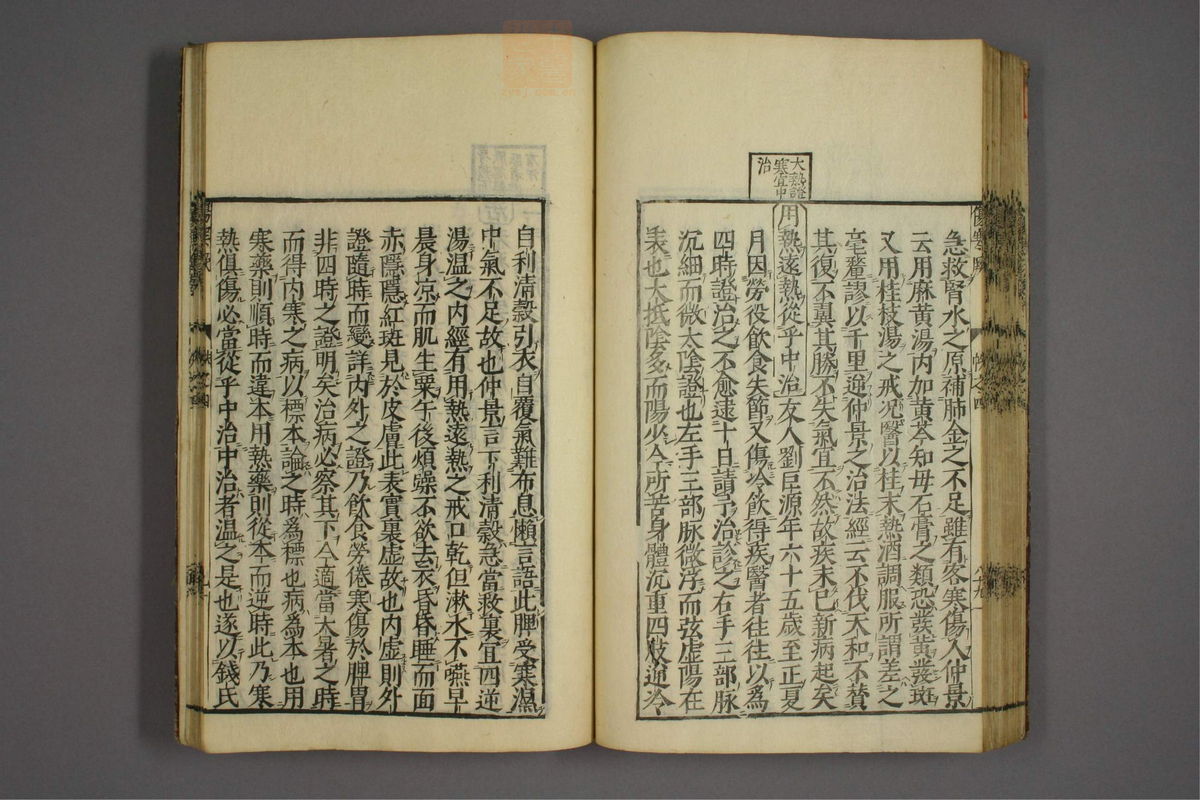 大熱證
寒宜中
治
急救腎水之原補肺金之不足雖有客寒傷入仲景
云用麻黄湯内加黄芩知母石膏之類恐發黄發斑
又用桂枝湯之戒况醫以桂末熱酒調服所謂差之
毫釐謬以千里逆仲景之治法經云不伐天和不賛
其復不翼其勝不失氣宜不然故疾未已新病起矣
用熱遠熱從乎中治友人劉巨源年六十五歳至正夏
月因勞役飲食失節又傷冷飲得疾醫者往往以爲
四時證治之不愈逮十日請予治診之右手三部脉
沉細而微太陰證也左手三部脉微浮而弦虚陽在
表也大抵陰多而陽少今所苦身體沉重四肢逆冷
自利清穀引衣自覆氣難布息懶言語此脾受寒濕
中氣不足故也仲景言下利清穀急當救裏宜四逆
湯温之内經有用熱遠熱之戒口乾但漱水不嚥早
晨身凉而肌生粟午後煩躁不欲去衣昏昏睡而面
赤隱隱紅斑見於皮膚此表實裏虚故也内虚則外
證隨時而變詳内外之證乃飲食勞倦寒傷於脾胃
非四時之證明矣治病必察其下今適當大暑之時
而得内寒之病以標本論之時爲標也病爲本也用
寒藥則順時而違本用熱藥則從本而逆時此乃寒
熱俱傷必當從乎中治中治者温之是也遂以錢氏